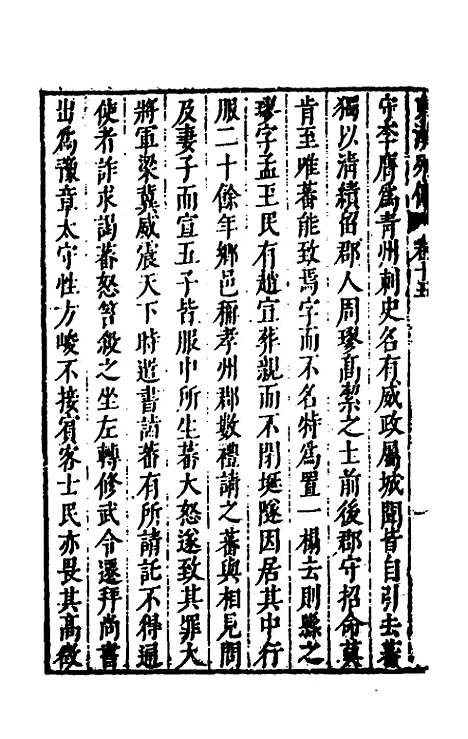 卷十五
守李膺爲青州刺史名有威政屬城聞皆自引去蕃
獨以清績留郡人周璆高㓗之士前後郡守招命莫
肯至唯蕃能致焉字而不名特爲置一榻去則縣之
璆字孟玉民有趙宣葬親而不閉埏隧因居其中行
服二十餘年鄉邑稱孝州郡數禮請之蕃與相見問
及妻子而宣五子皆服中所生蕃大怒遂致其罪大
將軍梁冀威震天下時遣書詣蕃有所請託不得通
使者詐求謁蕃怒笞殺之坐左轉修武令遷拜尚書
出爲豫章太守性方峻不接賓客士民亦畏其高徵